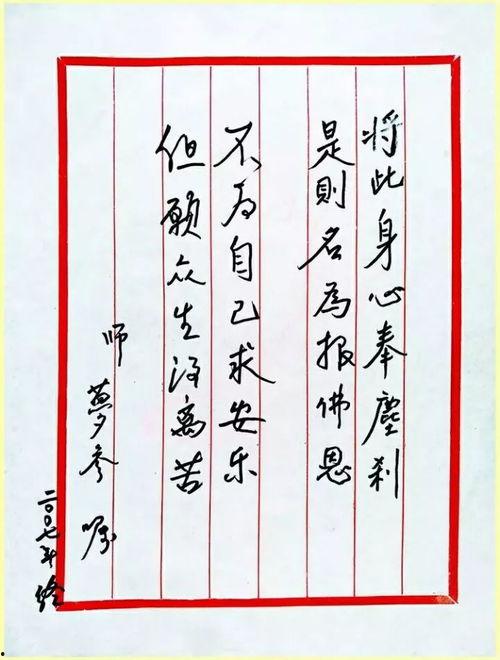 将此身心奉塵刹
是則名為报佛恩
不为自己求安乐
但願众生得离苦
师 夢参 嘱
二〇〇七年